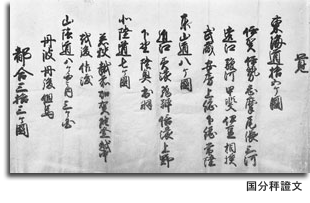 覚
東海道拾五ヶ國
伊賀 伊勢 志摩 尾張 三河
遠江 駿河 甲斐 伊豆 相模
武蔵 安房 上総 下総 常陸
東山道八ヶ國
近江 美濃 飛騨 信濃 上野
下野 陸奥 出羽
北陸道七ヶ國
若狭 越前 加賀 能登 越中
越後 佐渡
山陰道八ヶ國之内三ヶ國
丹波 丹後 但馬
都合三拾三ヶ國
国分秤證文